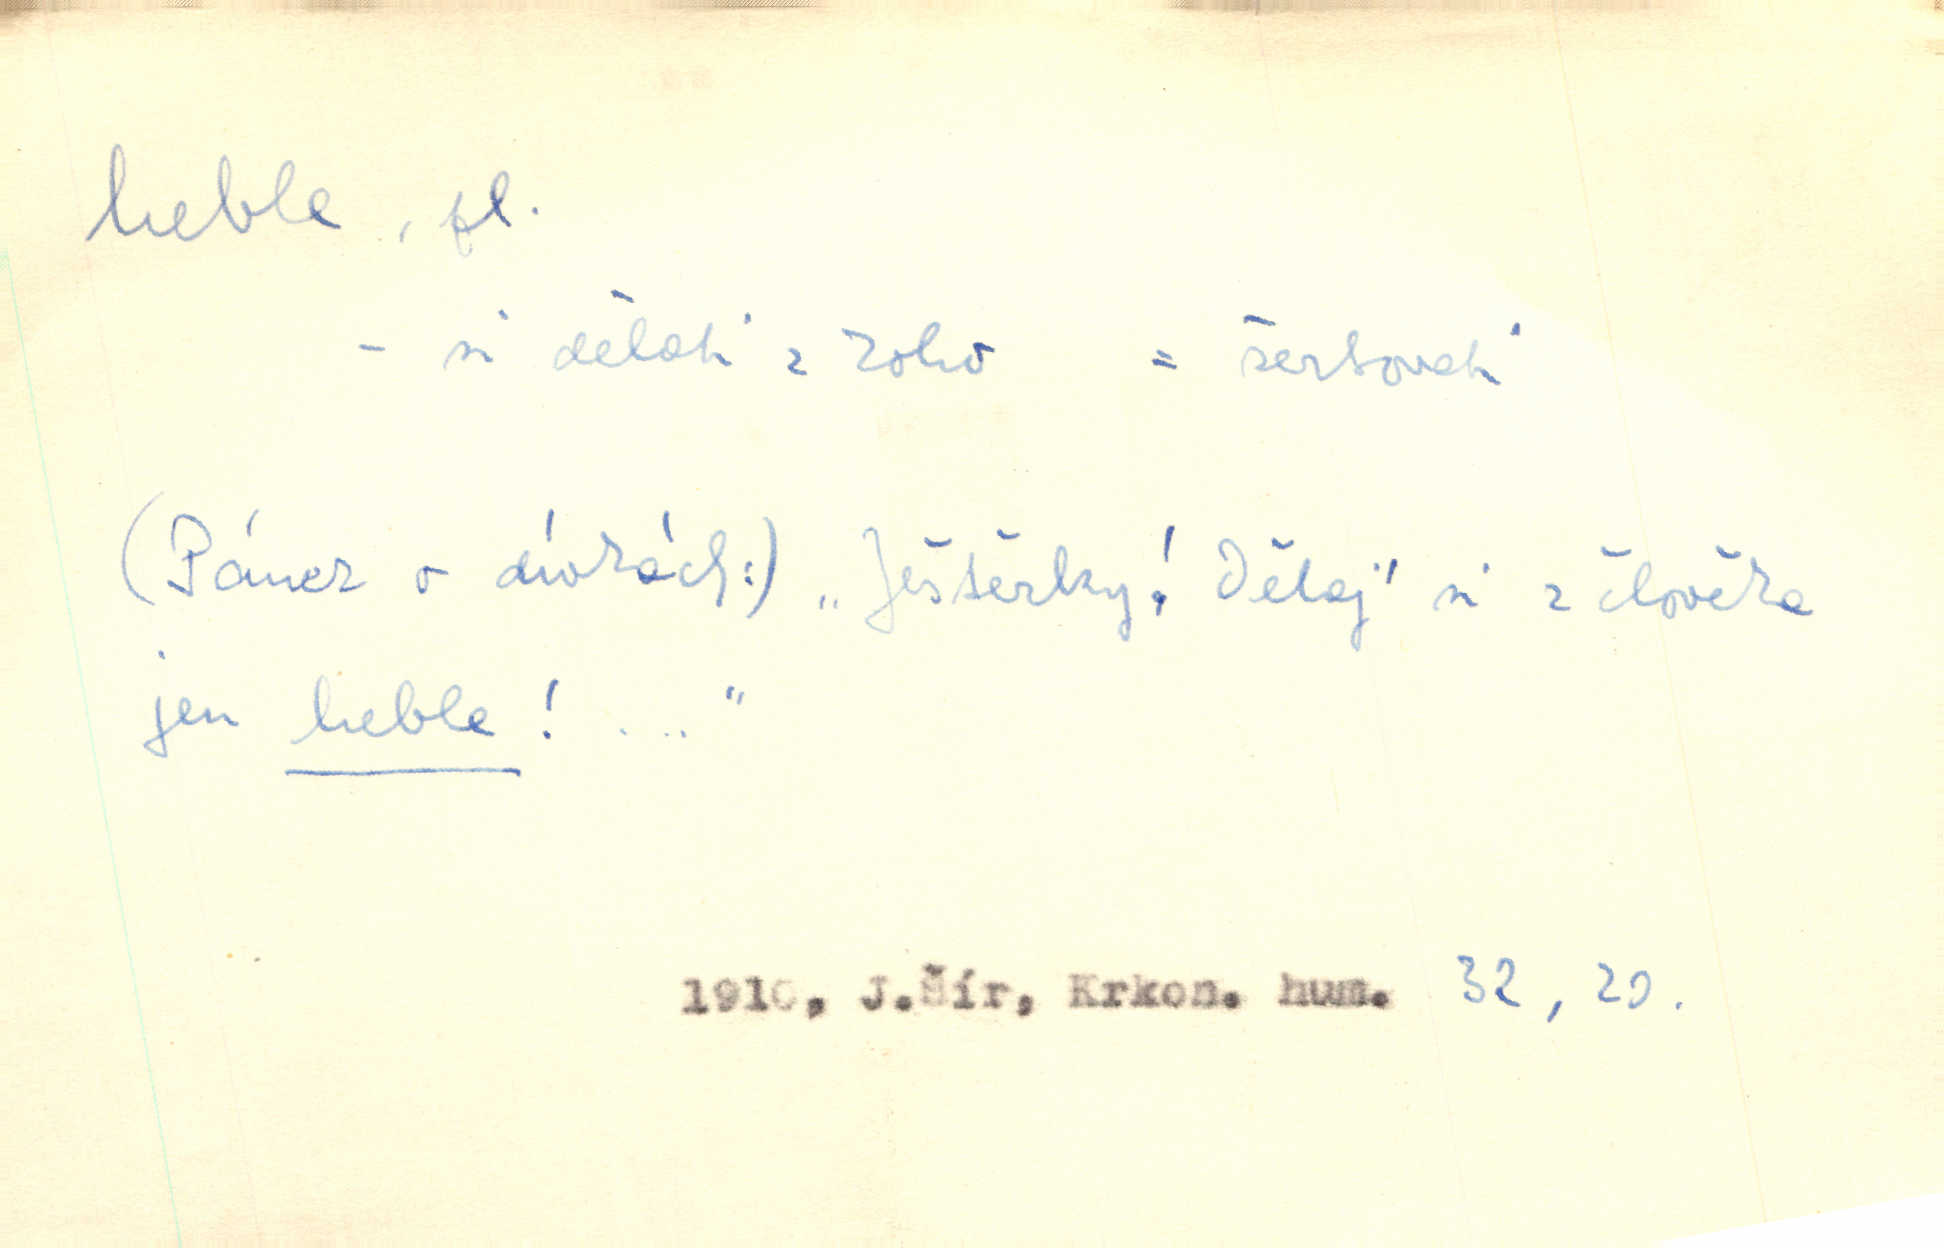 heble, pl.
- si dělati z koho = žertovati
(Pánek o dívkách:) „Ještěrky! Dělají si z člověka
jen heble! ..."
1910, J.Šír, Krkon. hum. 32, 20.